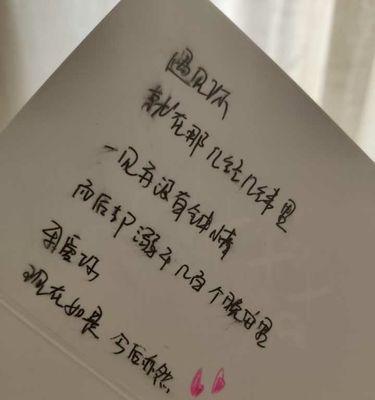 遇见你
就在那几经几纬里
一见再没有钟情
而后却溺于几百个晚安里
余屋好
现在如是 今后亦然